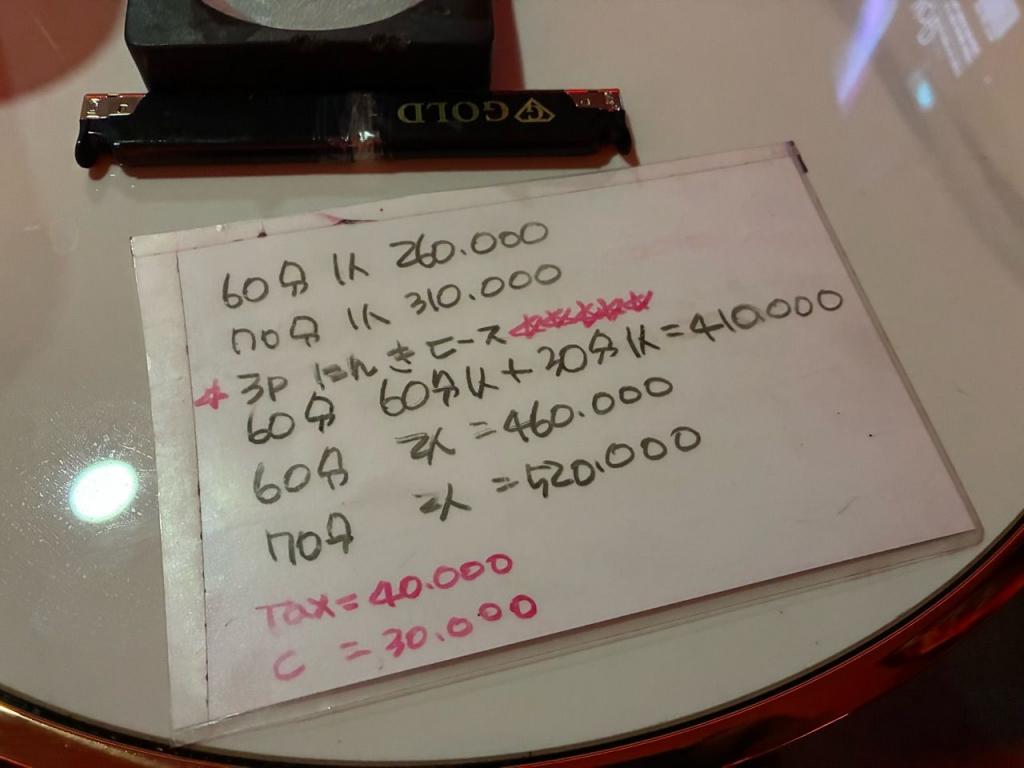 GOLD
60分 1人 260.000
70分 1人 310.000
3P にんきコース
60分 60分1人+30分1人=410.000
60分 2人 =460.000
70分 2人 =520.000
Tax=40.000
C =30.000